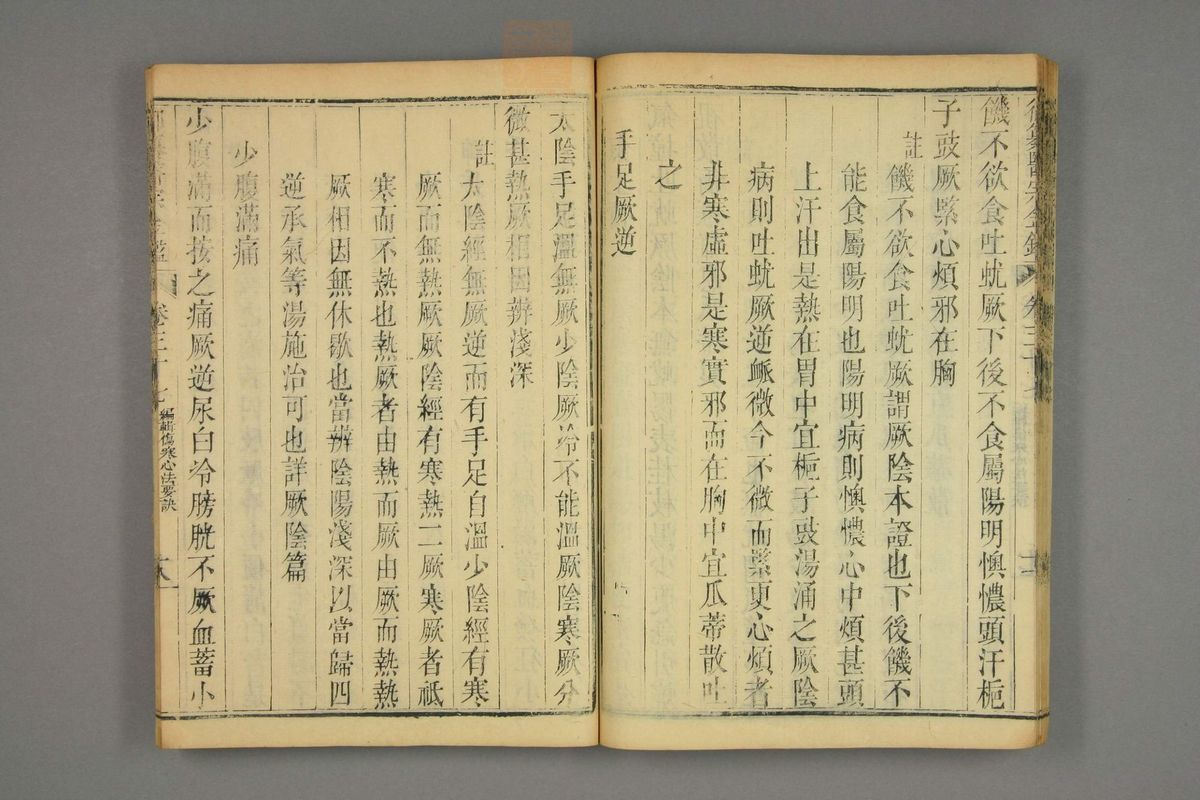 御纂醫宗金鑑 卷三十七
饑不欲食吐蚘厥下後不食屬陽明懊憹頭汗梔
子豉厥緊心煩邪在胸
註
饑不欲食吐蚘厥謂厥陰本證也下後饑不
能食屬陽明也陽明病則懊憹心中煩甚頭
上汗出是熱在胃中宜梔子豉湯涌之厥陰
病則吐蚘厥逆脈微今不微而緊更心煩者
非寒虛邪是寒實邪而在胸中宜瓜蒂散吐
之
手足厥逆
太陰手足溫無厥少陰厥冷不能溫厥陰寒厥分
微甚熱厥相因辨淺深
註
太陰經無厥逆而有手足自溫少陰經有寒
厥而無熱厥厥陰經有寒熱二厥寒厥者祇
寒而不熱也熱厥者由熱而厥由厥而熱熱
厥相因無休歇也當辨陰陽淺深以當歸四
逆承氣等湯施治可也詳厥陰篇
少腹滿痛
少腹滿而按之痛厥逆尿白冷膀胱不厥血蓄小
卷三十七 編輯傷寒心法要訣